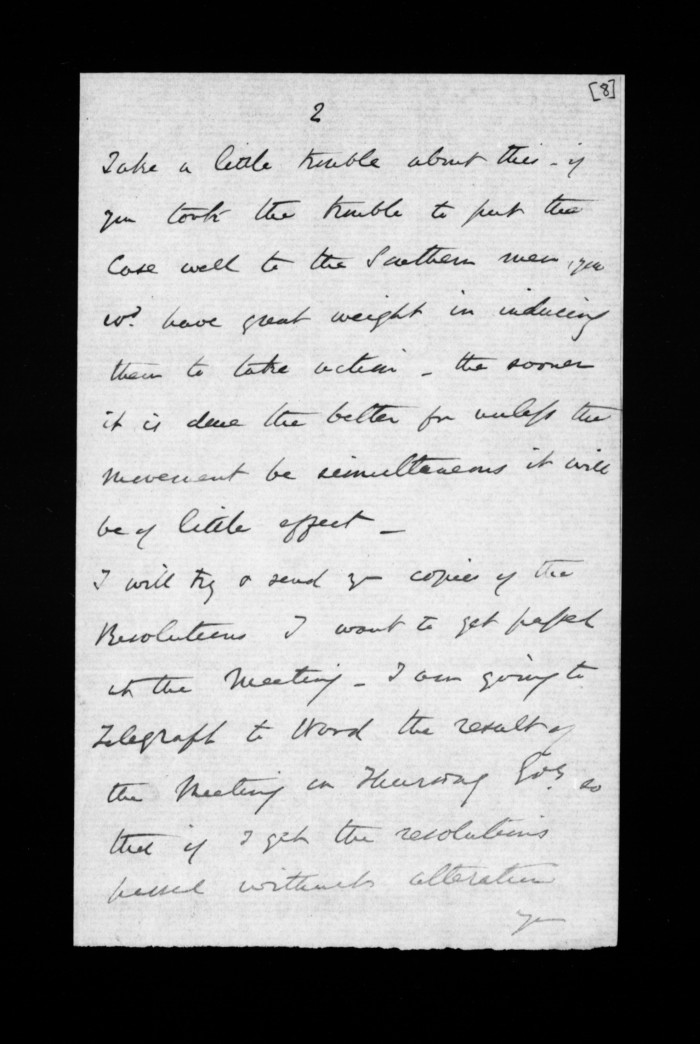 [8]
2
Take a little trouble about this - if
you took the trouble to put the
Case well to the Southern men, you
wd. have great weight in inducing
them to take action - the sooner
it is done the better for unless the
movement be simultaneous it will
be of little effect -
I will try & send yr copies of the
Resolutions I want to get passed
at the Meeting - I am going to
Telegraph to Ward the result of
the Meeting on Thursday Evg. so
that if I get the resolutions
passed without alteration
you